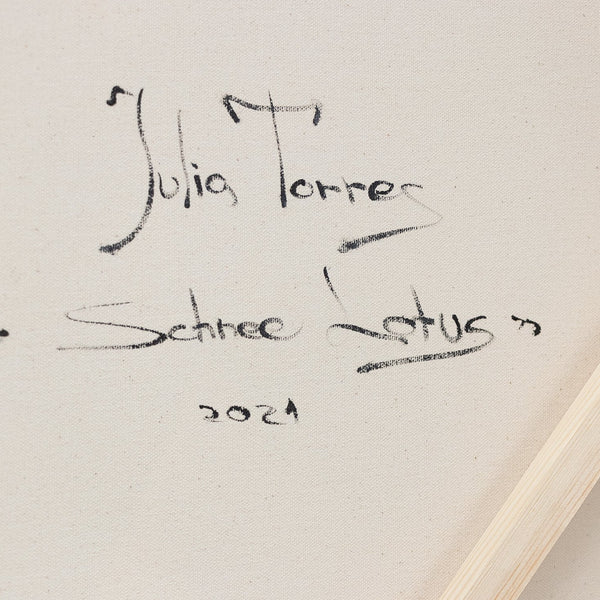 Julia Torres
"Schnee Lotus"
2021